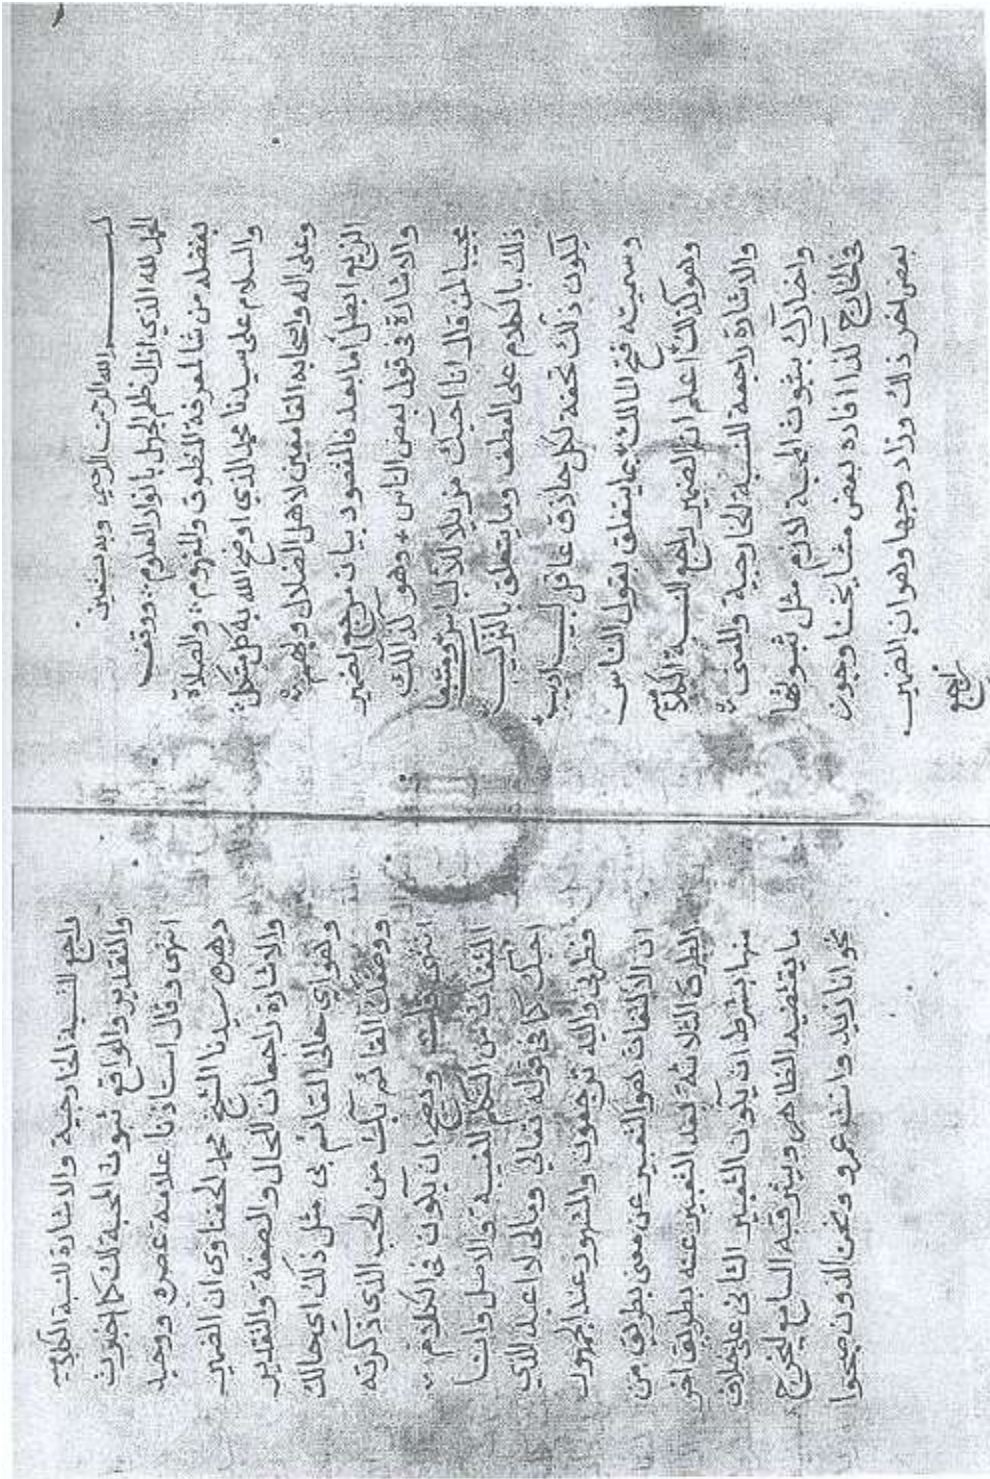 بسم الله الرحمن الرحيم وبه نستعين
الحمد لله الذي ازال ظلم الجهل بانوار العلوم ووفق
بفضله من شا لمعرفة المنطوق والمفهوم والصلاة
والسلام على سيدنا محمد الذي اوضح الله به كل مشكل
وعلى اله واصحابه القامعين لاهل الضلال
الزيغ ابطل اما بعد فالمقصود بيان مرجع الضمير
والاشارة في قول بعض الناس وهو كذلك
مجيبا لمن قال انا احبك مزيلا للالباس ومتبعا
ذلك بالكلام على العطف وما يتعلق بالتركيب
ليكون ذلك تحفة لكل حاذق عاقل لبيب اديب
وسميته فتح المالك بما يتعلق بقول الناس
وهو كذلك اعلم ان الضمير راجع للنسبة الكلامية
والاشارة راجعة للنسبة الخارجية والمعنى
واخبارك بثبوت المحبة لازم مثل ثبوتها
في الخارج كذا افاده بعض مشايخنا وجوز
بعض اخر ذلك وزاد وجها وهو ان الضمير
راجع
راجع للنسبة الخارجية والاشارة للنسبة الكلامية
والتقدير والواقع ثبوت المحبة لك كما اخبرت
انتهى وقال استاذنا علامة عصره ووحيد
دهره سيدنا الشيخ محمد الحفناوى ان الضمير
والاشارة راجعان للحال والصفة والتقدير
وهو اي حالي القائم بي مثل ذلك اي حالك
ووصفك القائم بك من الحب الذي ذكرته
انتهى قلت ويصح ان يكون في الكلام
التفات من التكلم للغيبة والاصل وانا
احبك كما في قوله تعالى ومالي لا اعبد الذي
فطرني واليه ترجعون والمشهور عند الجمهور
ان الالتفات هو التعبير عن معنى بطريق من
الطرق الثلاثة بعد التعبير عنه بطريق اخر
منها بشرط ان يكون التعبير الثاني على خلاف
ما يقتضيه الظاهر ويترقبه السامع ليخرج
نحو انا زيد وانت عمرو ونحن الذون صبحوا